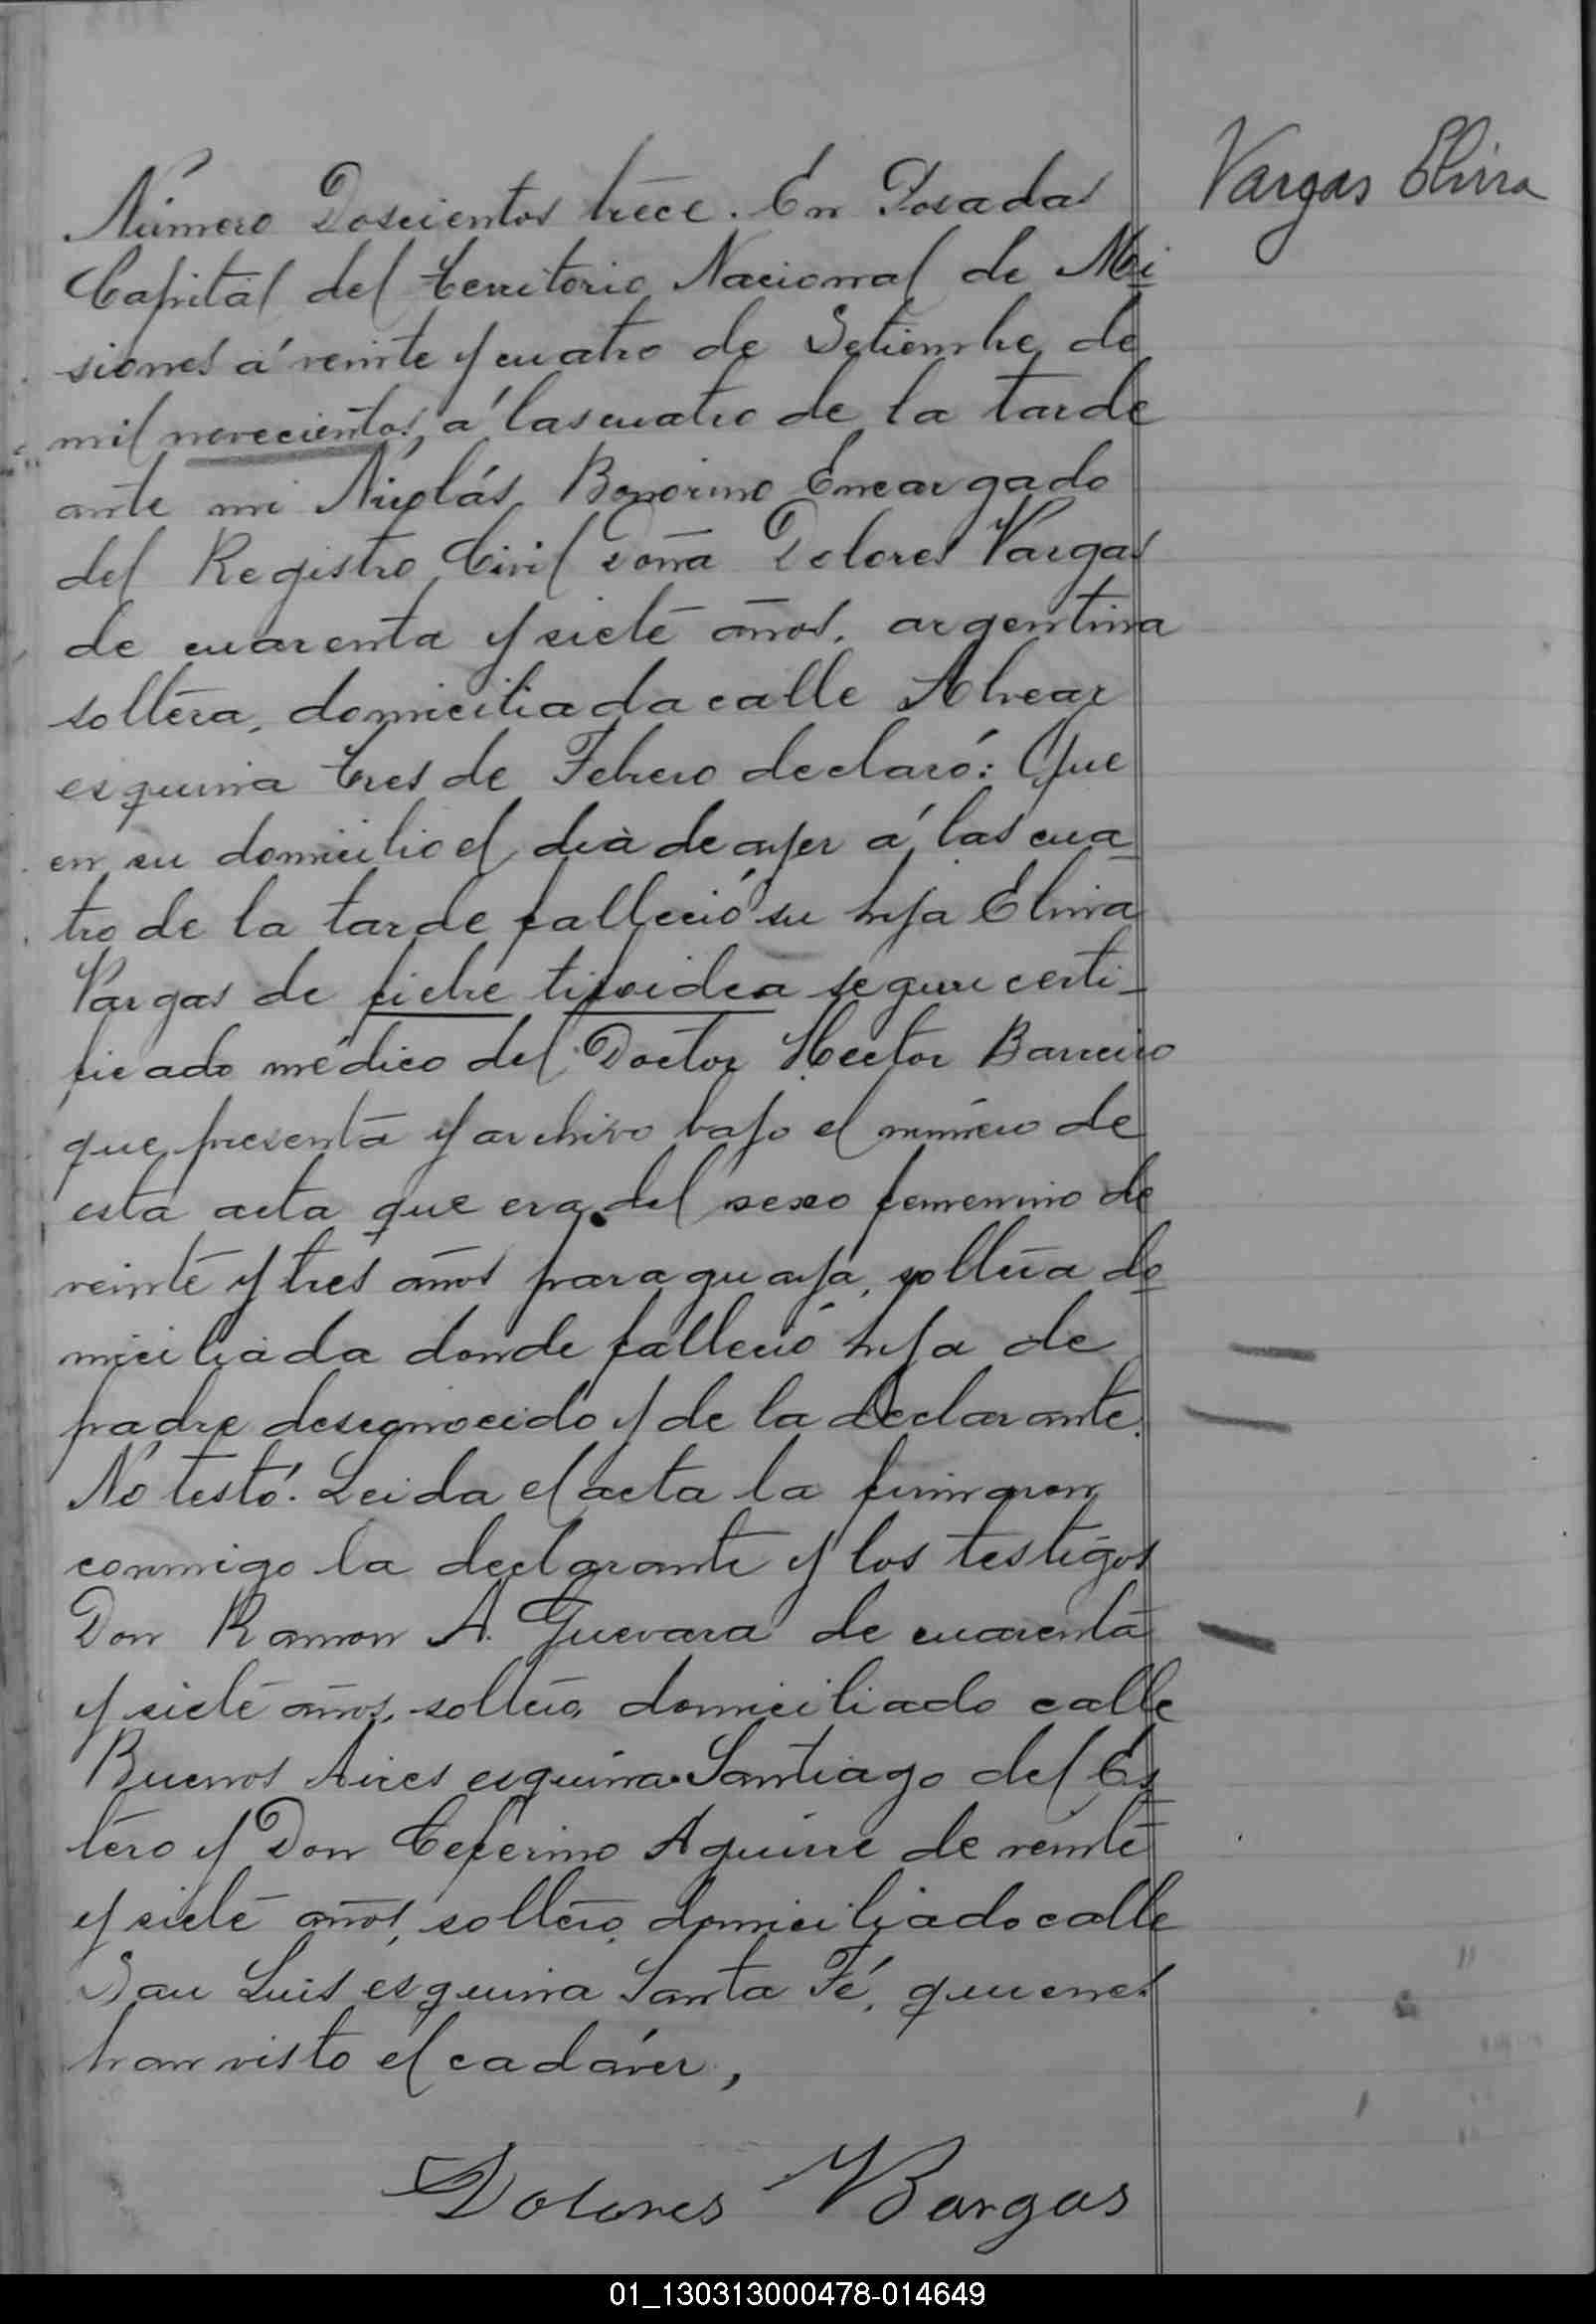 Vargas Elvira
Número Doscientos trece. En Posadas
Capital del territorio Nacional de Mi
siones á veinte y cuatro de Setiembre de
mil novecientos, á las cuatro de la tarde
ante mi Nicolás Bonorino Encargado
del Registro Civil doña Dolores Vargas
de cuarenta y siete años, argentina
soltera, domiciliada calle Alvear
esquina tres de Febrero declaró: Que
en su domicilio el dia de ayer á las cua
tro de la tarde falleció su hija Elvira
Vargas de fiebre tifoidea segun certi-
ficado médico del Doctor Hector Barreiro
que presenta y archivo bajo el número de
esta acta que era del sexo femenino de
veinte y tres años paraguaya, soltera do
miciliada donde falleció hija de
padre desconocido y de la declarante.
No testó. Leida el acta la firmaron
conmigo la declarante y los testigos
Don Ramon A. Guevara de cuarenta
y siete años, soltero, domiciliado calle
Buenos Aires esquina Santiago del Es
tero y Don Ceferino Aguirre de veinte
y siete años, soltero, domiciliado calle
San Luis esquina Santa Fé, quienes
han visto el cadáver,
Dolores Bargas
01_130313000478-014649